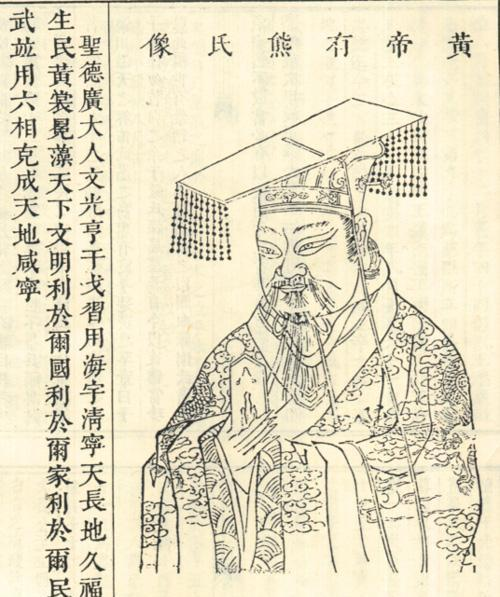 黃帝有熊氏像
聖德廣大人文光亨干戈習用海宇清寧天長地久福
生民黃裳冕藻天下文明利於爾國利於爾家利於爾民
武竝用六相克成天地咸寧